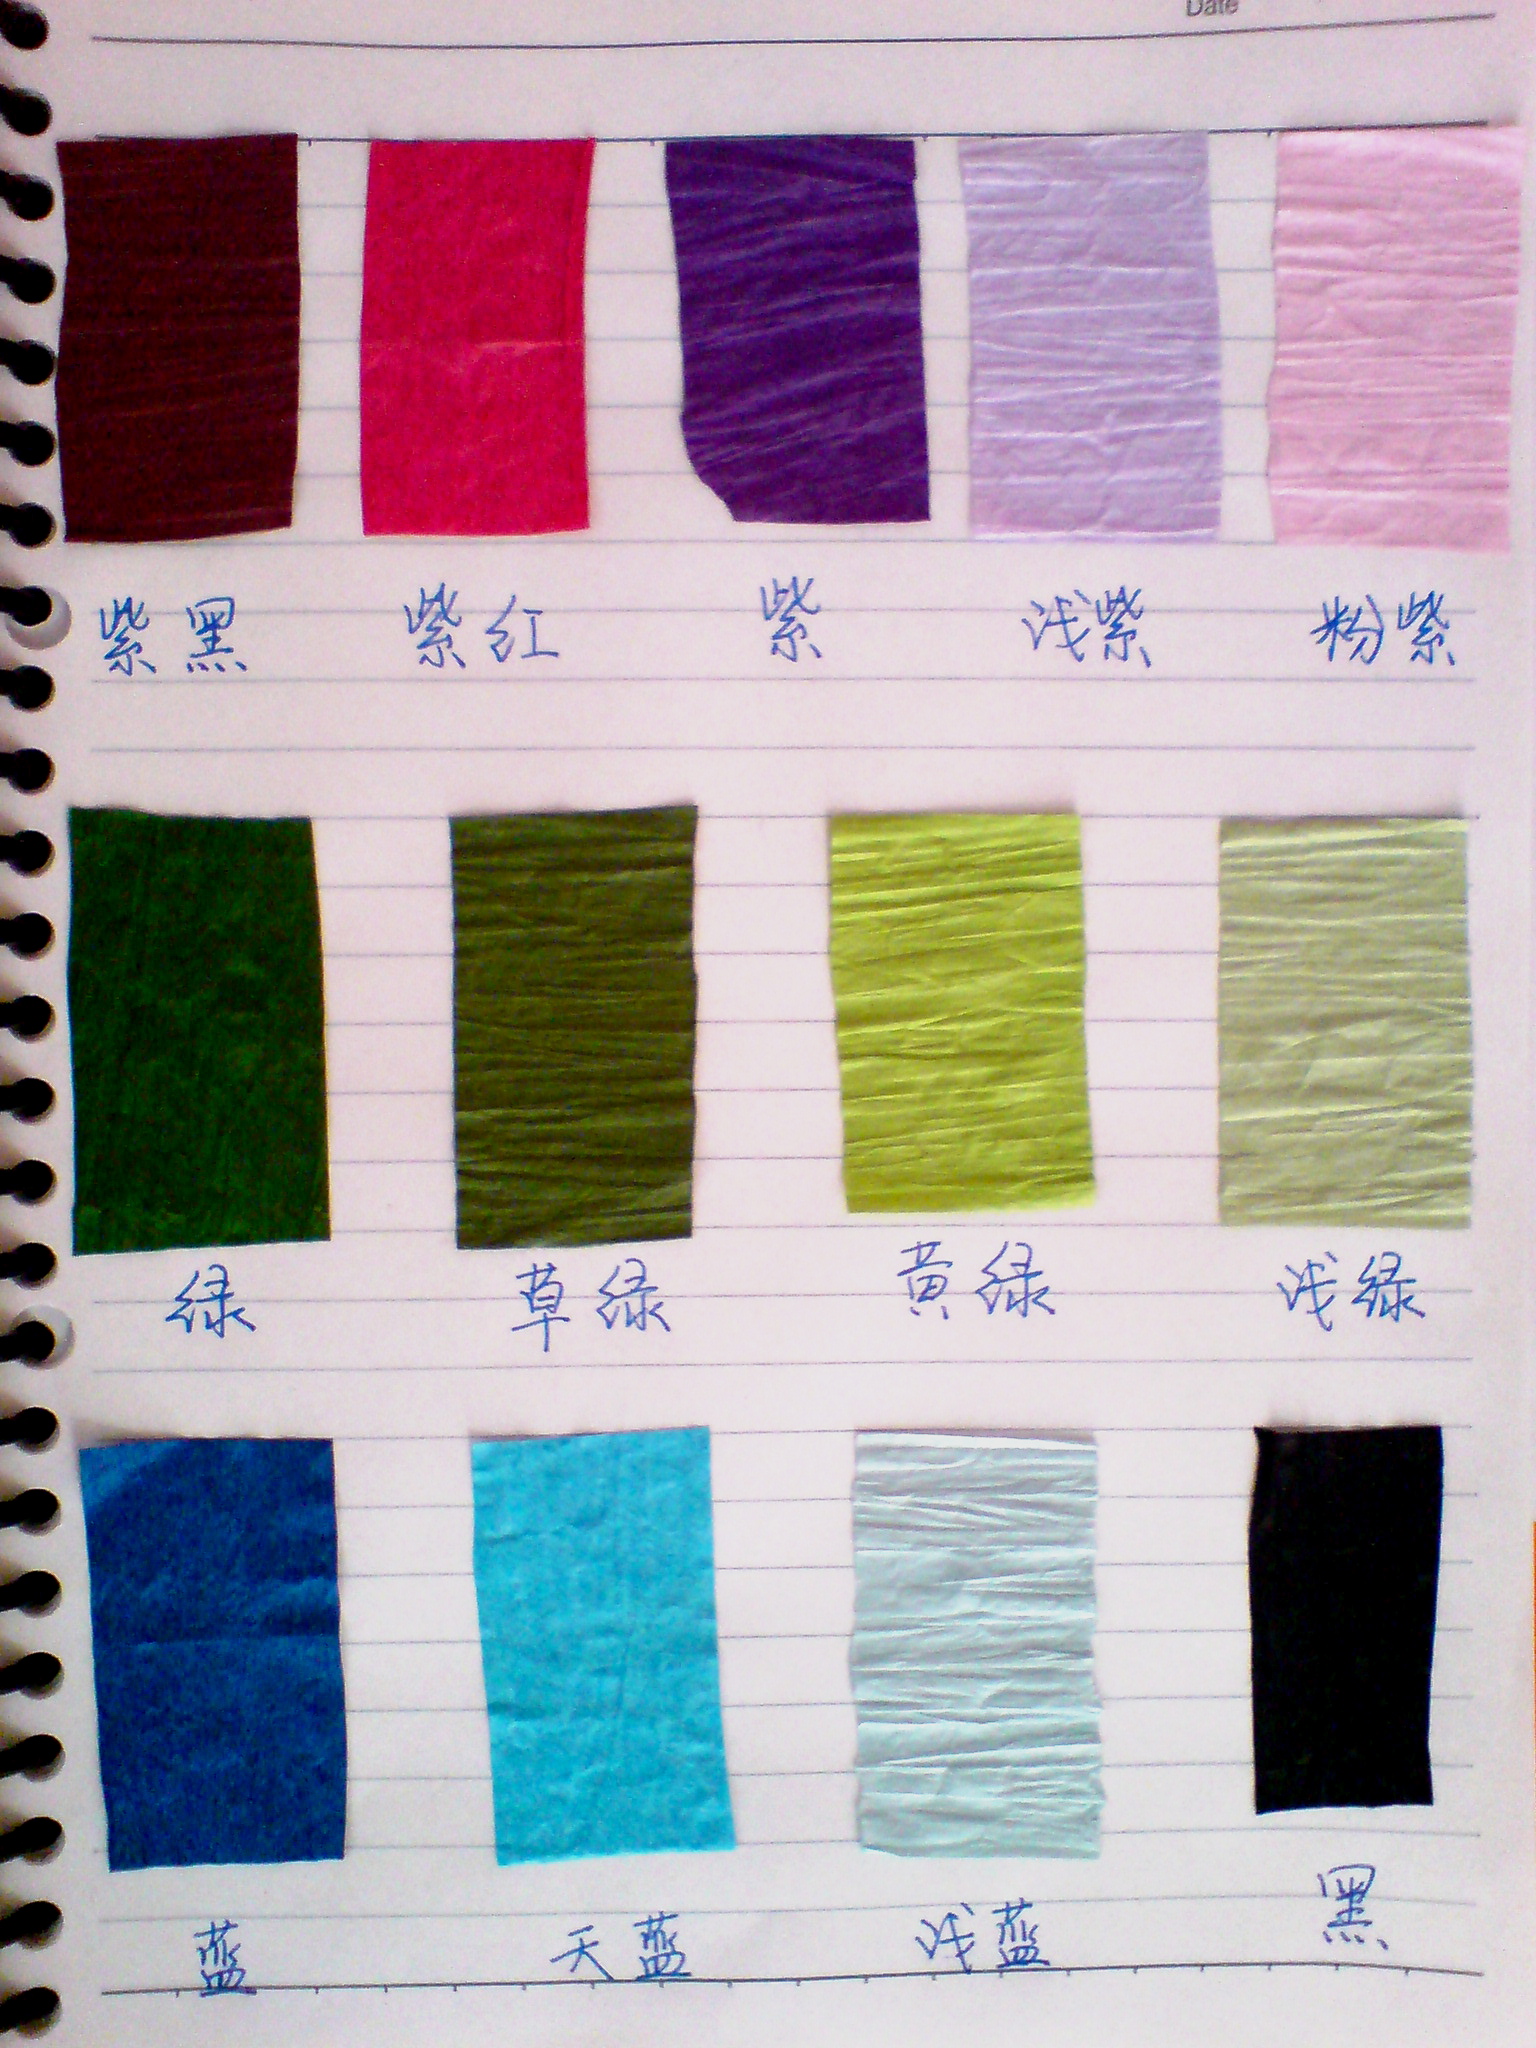 Date
紫黑 紫红 紫 浅紫 粉紫
绿 草绿 黄绿 浅绿
蓝 天蓝 浅蓝 黑